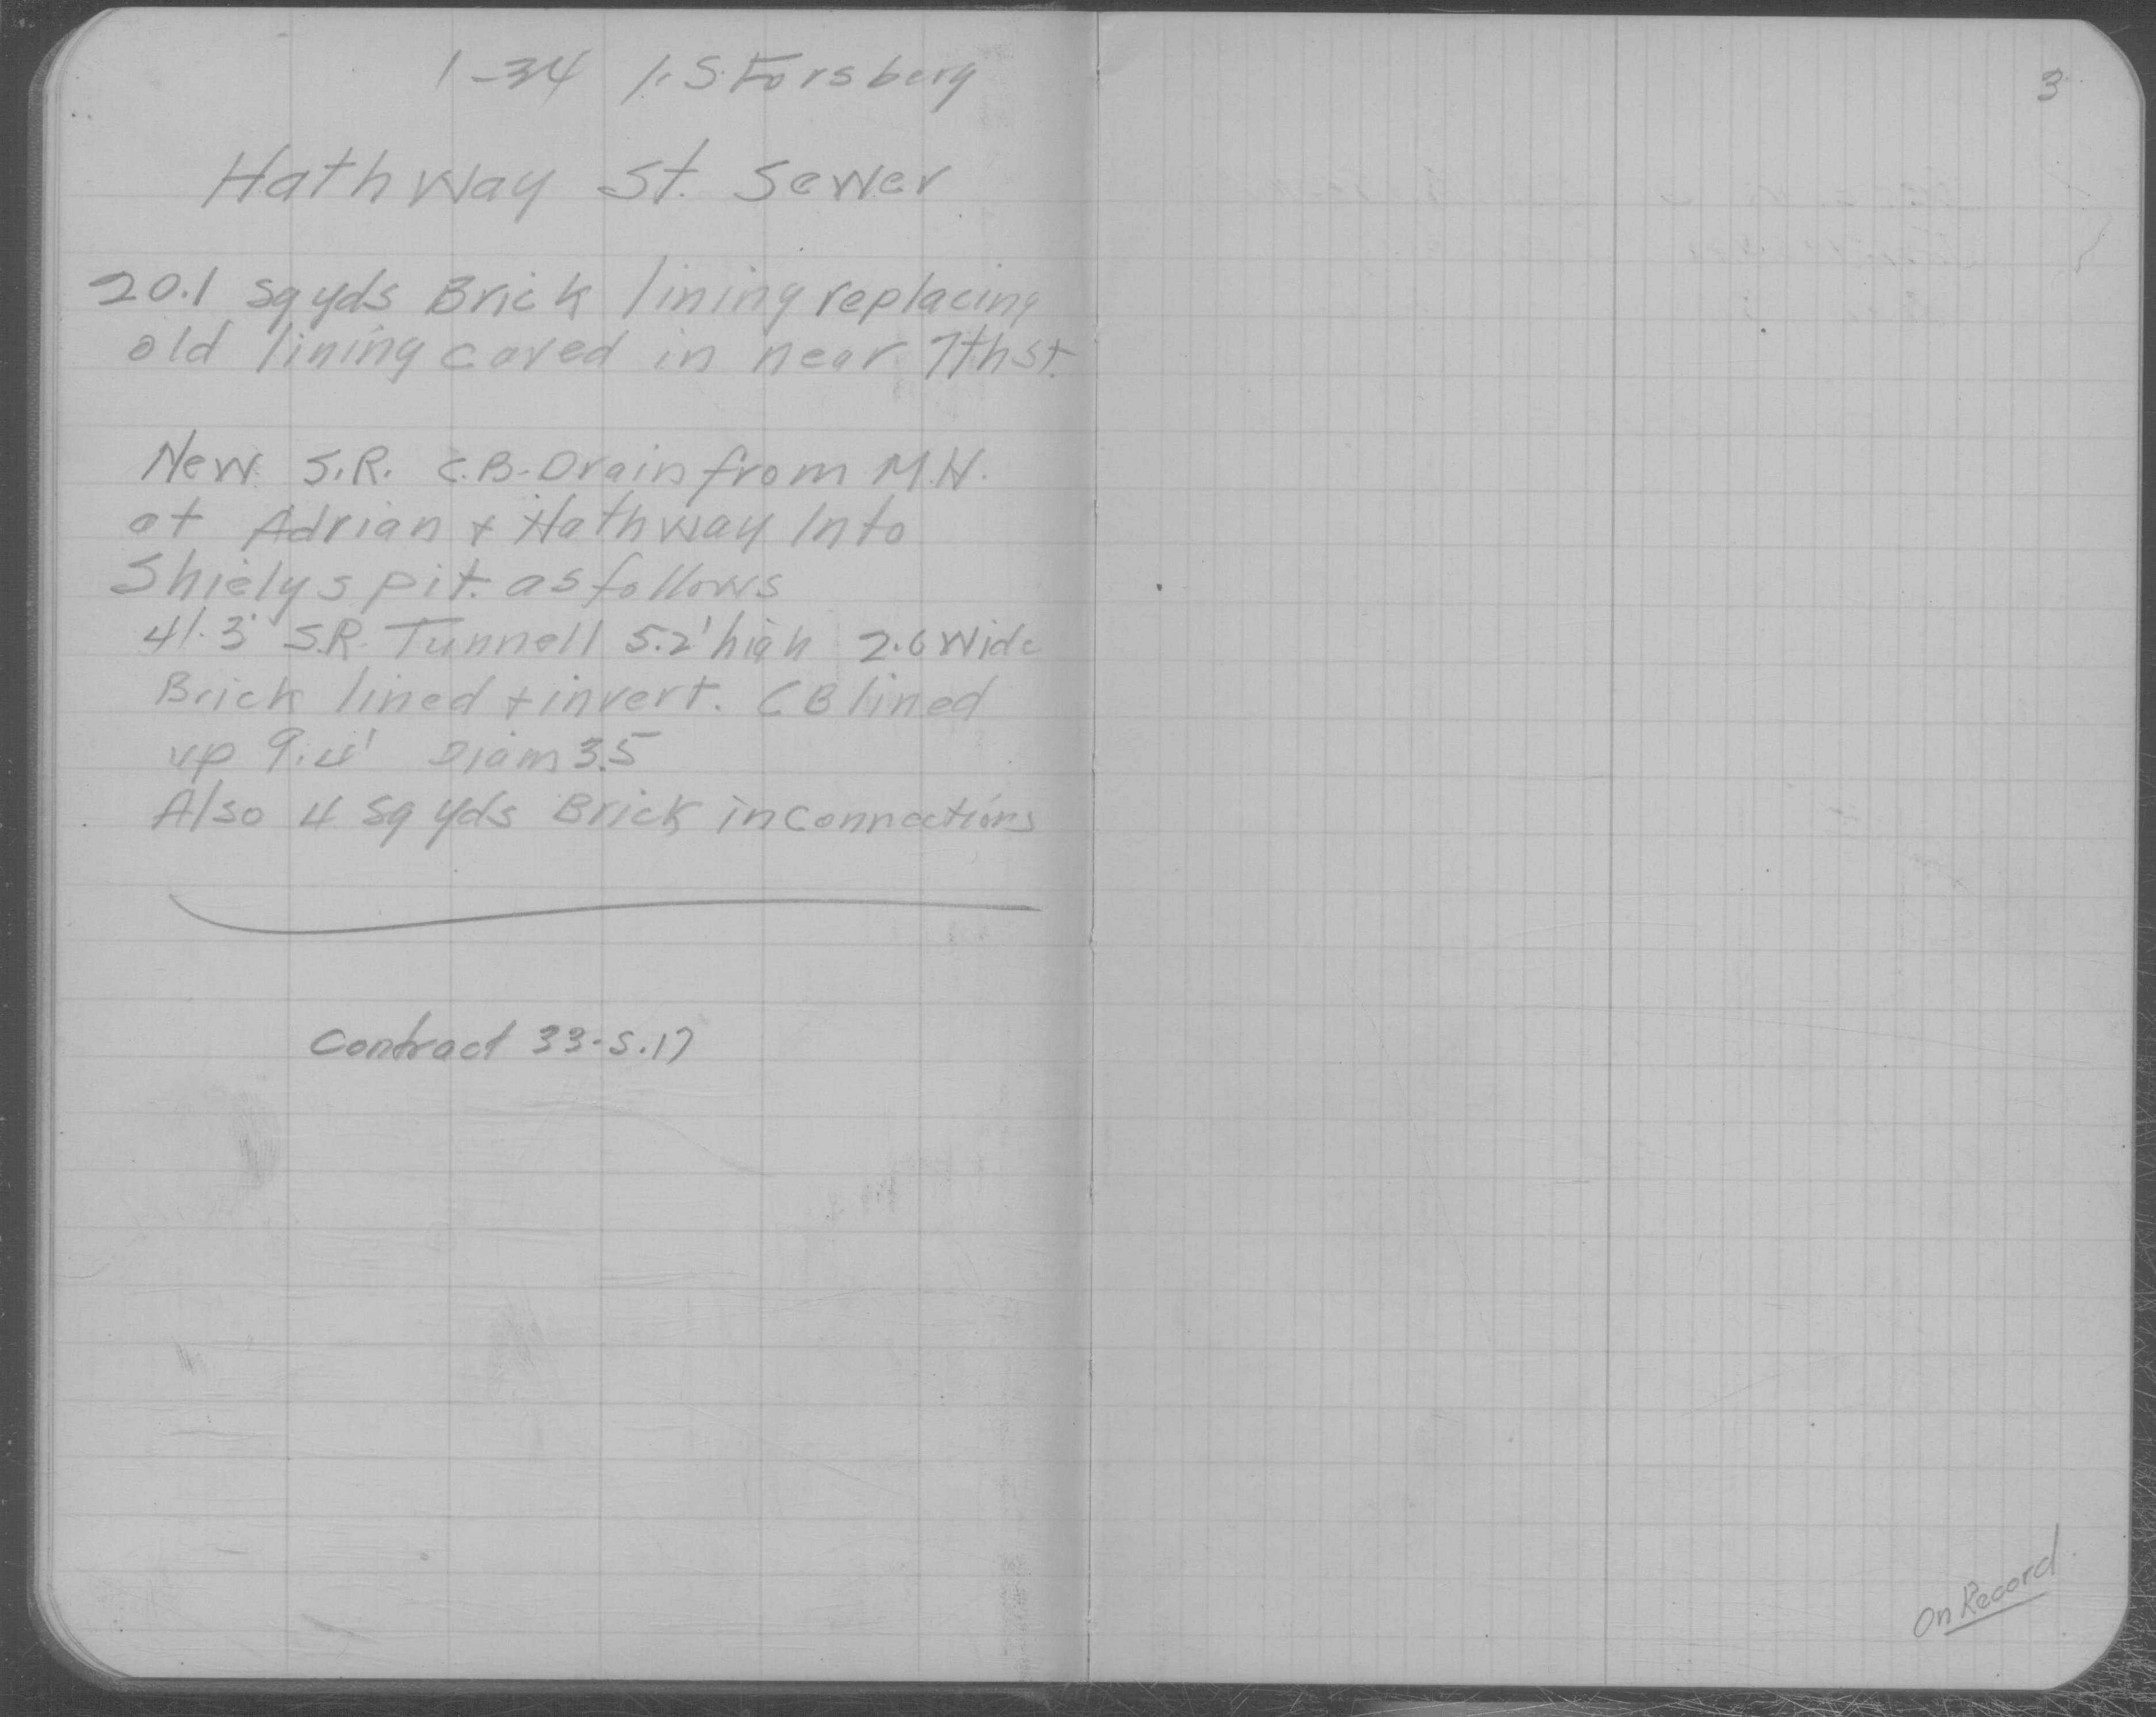 1-34 1. S. Forsberg
Hathway St. Sewer
20.1 sq yds Brick lining replacing
old lining caved in near 7th St.
New S.R. C.B. Drain from M.H.
at Adrian + Hathway Into
Shielys pit. as follows
41.3' S.R. Tunnell 5.2' high 2.6 Wide
Brick lined + invert. CB lined
up 9.4' Diam 3.5
Also 4 sq yds Brick in Connections
Contract 33-S.17
3
On Record